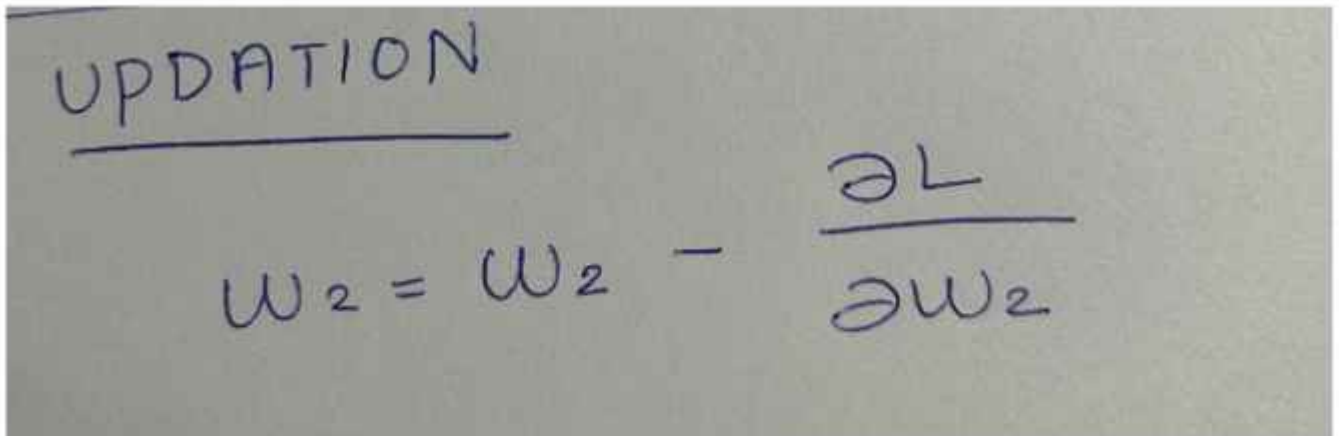 UPDATION
W2 = W2 - ∂L/∂W2